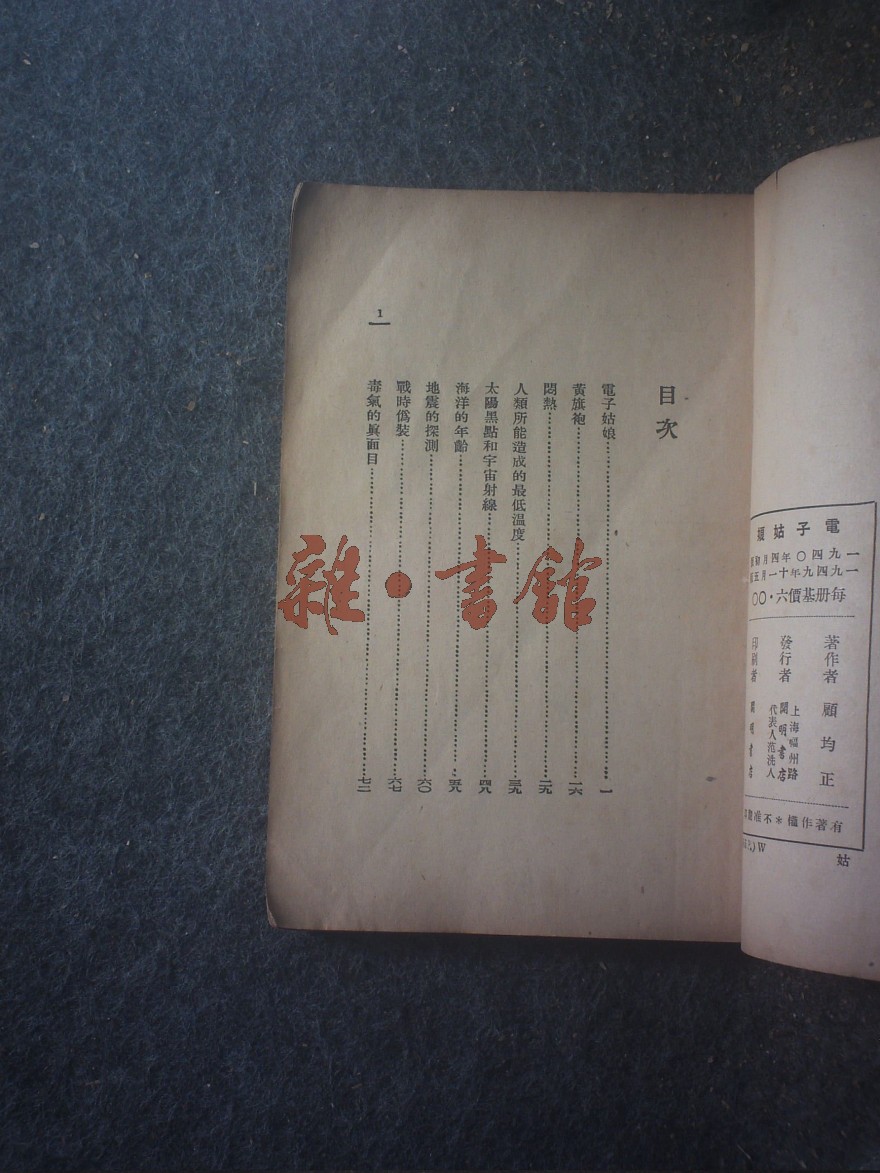 目次
電子姑娘……一
黃旗袍……一六
悶熱……二九
人類所能造成的最低溫度……三九
太陽黑點和宇宙射線……四八
海洋的年齡……五八
地震的探測……六〇
戰時偽裝……六七
毒氣的真面目……七二
1
電子姑娘
一九四〇年四月初
一九四九年十一月五
每册基價六·〇〇
著作者 顧均正
發行者 上海福州路
開明書店
代表人范洗人
印刷者 開明書店
有著作權＊不准
W
姑
雜·書館